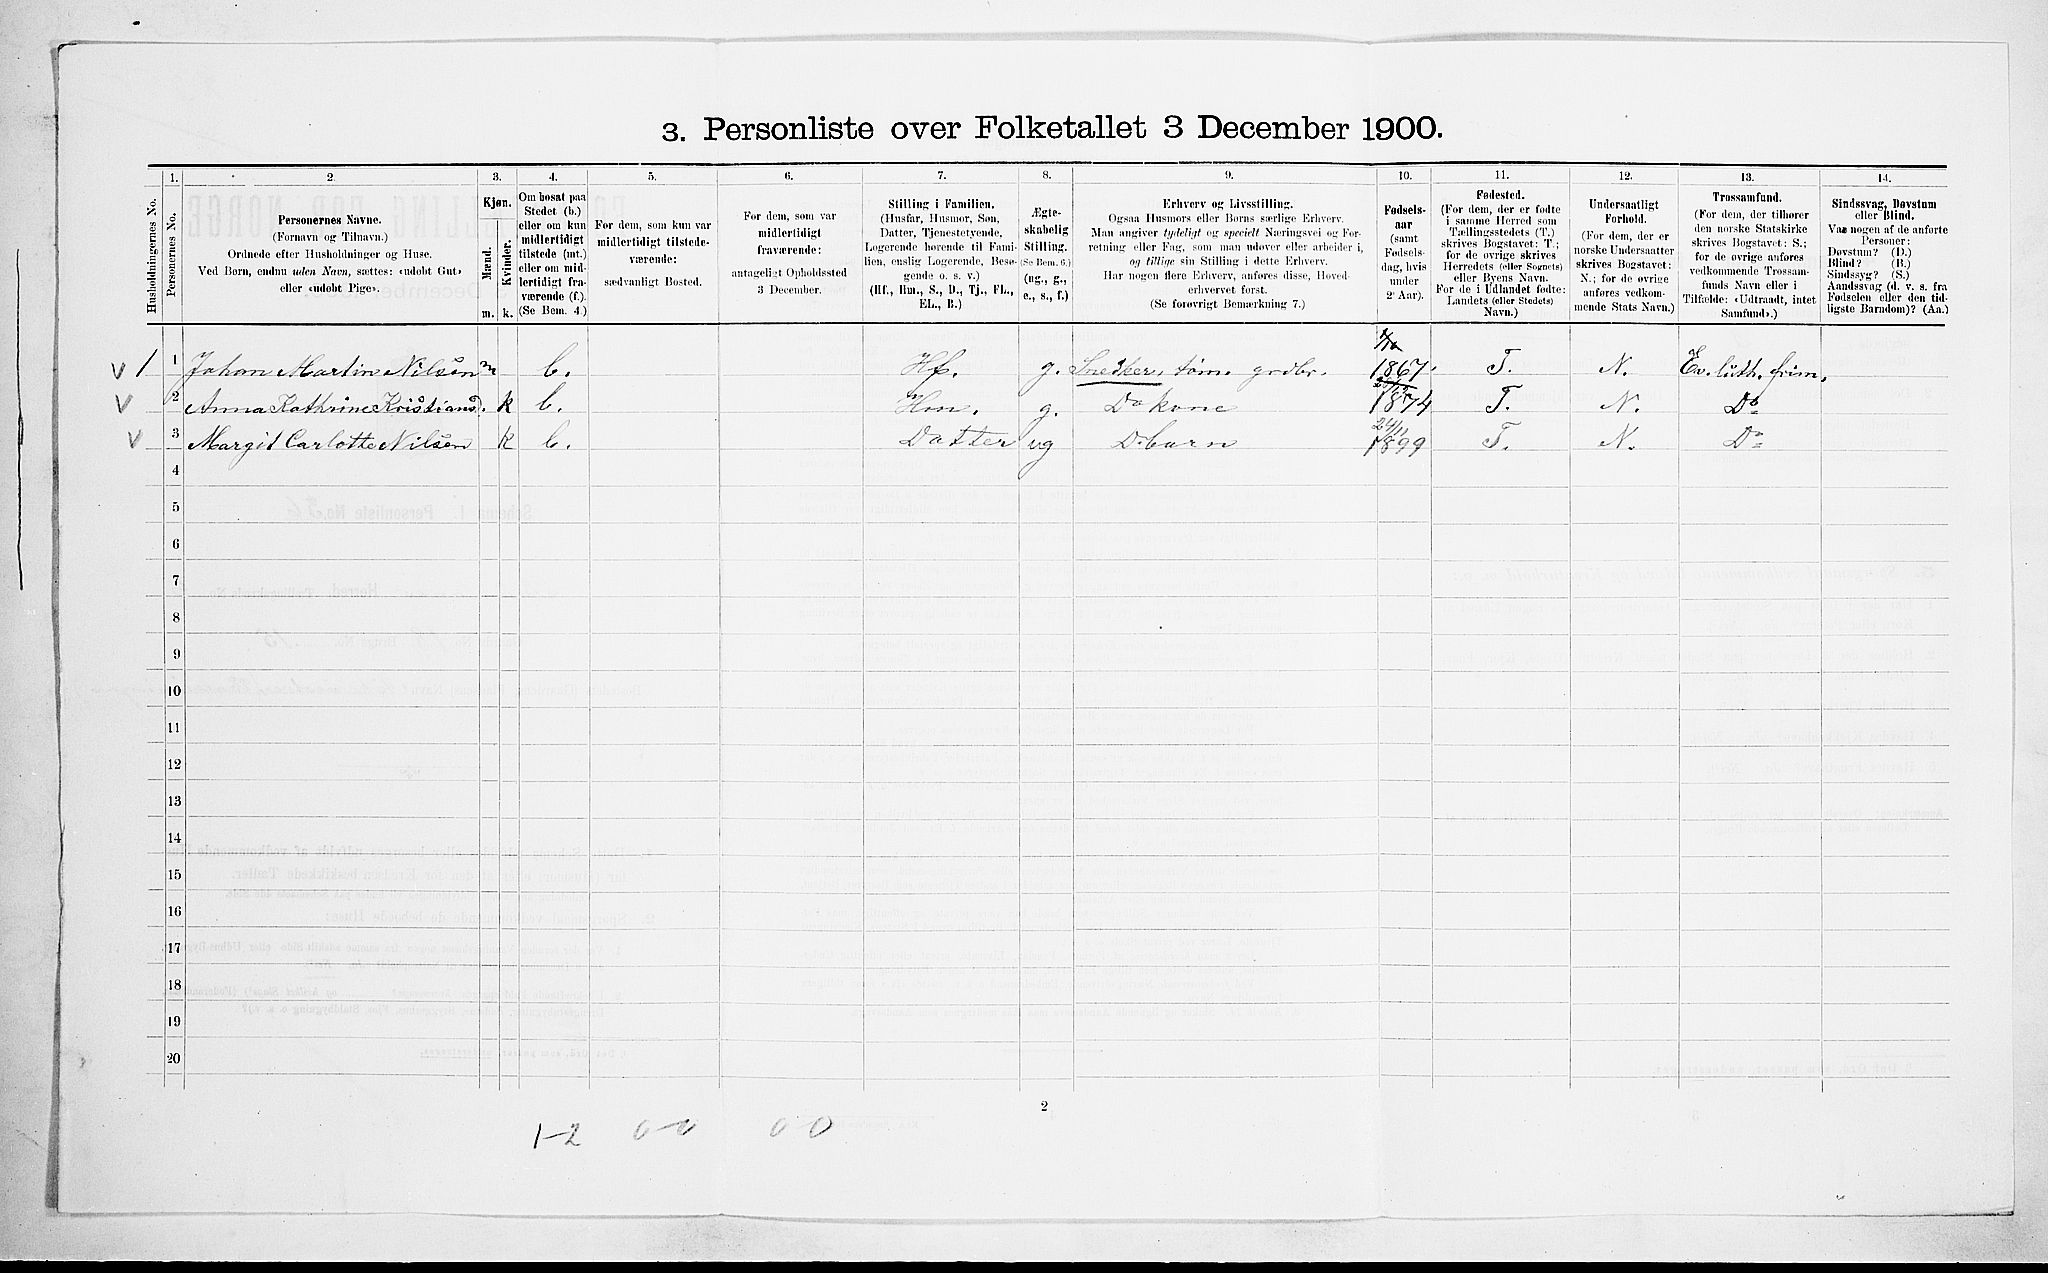 3. Personliste over Folketallet 3 December 1900.
1. 2. 3. 4. 5. 6. 7. 8. 9. 10. 11. 12. 13. 14.
Husholdningernes No.
Personernes No.
Personernes Navne.
(Fornavn og Tilnavn.)
Ordnede efter Husholdninger og Huse.
Ved Børn, endnu uden Navn, sættes: «udøbt Gut»
eller «udøbt Pige».
Kjøn.
Mænd.
Kvinder.
m. k.
Om bosat paa
Stedet (b.)
eller om kun
midlertidigt
tilstede (mt.)
eller om mid-
lertidigt fra-
værende (f.).
(Se Bem. 4.)
For dem, som kun var
midlertidigt tilstede-
værende:
sædvanligt Bosted.
For dem, som var
midlertidigt
fraværende:
antageligt Opholdssted
3 December.
Stilling i Familien.
(Husfar, Husmor, Søn,
Datter, Tjenestetyende,
Logerende hørende til Fami-
lien, enslig Logerende, Besø-
gende o. s. v.)
(Hf., Hm., S., D., Tj., FL.,
EL., B.)
Ægte-
skabelig
Stilling.
(Se Bem. 6.)
(ug., g.,
e., s., f.)
Erhverv og Livsstilling.
Ogsaa Husmors eller Børns særlige Erhverv.
Man angiver tydeligt og specielt Næringsvei og For-
retning eller Fag, som man udøver eller arbeider i,
og tillige sin Stilling i dette Erhverv.
Har nogen flere Erhverv, anføres disse, Hoved-
erhvervet først.
(Se forøvrigt Bemærkning 7.)
Fødsels-
aar
(samt
Fødsels-
dag, hvis
under
2 Aar).
Fødested.
(For dem, der er fødte
i samme Herred som
Tællingsstedets (T.)
skrives Bogstavet: T.;
for de øvrige skrives
Herredets (eller Sognets)
eller Byens Navn.
For de i Udlandet fødte:
Landets (eller Stedets)
Navn.)
Undersaatligt
Forhold.
(For dem, der er
norske Undersaatter
skrives Bogstavet:
N.; for de øvrige
anføres vedkom-
mende Stats Navn.)
Trossamfund.
(For dem, der tilhører
den norske Statskirke
skrives Bogstavet: S.;
for de øvrige anføres
vedkommende Trossam-
funds Navn eller i
Tilfælde: «Udtraadt, intet
Samfund».)
Sindssvag, Døvstum
eller Blind.
Var nogen af de anførte
Personer:
Døvstum? (D.)
Blind? (B.)
Sindssyg? (S.)
Aandssvag (d. v. s. fra
Fødselen eller den tid-
ligste Barndom)? (Aa.)
v 1 1 Johan Martin Nilsen m b. Hf. g. Snedker, tøm. grdbr. 1867. T. N. Ev. luth. frim.
v 2 Anna Kathrine Kristiansd. k b. Hm. g. Do kone 1874 T. N. Do
v 3 Margit Carlotte Nilsen k b. Datter ug Do barn 24/11 1899 T. N. Do
4
5
6
7
8
9
10
11
12
13
14
15
16
17
18
19
20
2
1-2 0-0 0 0